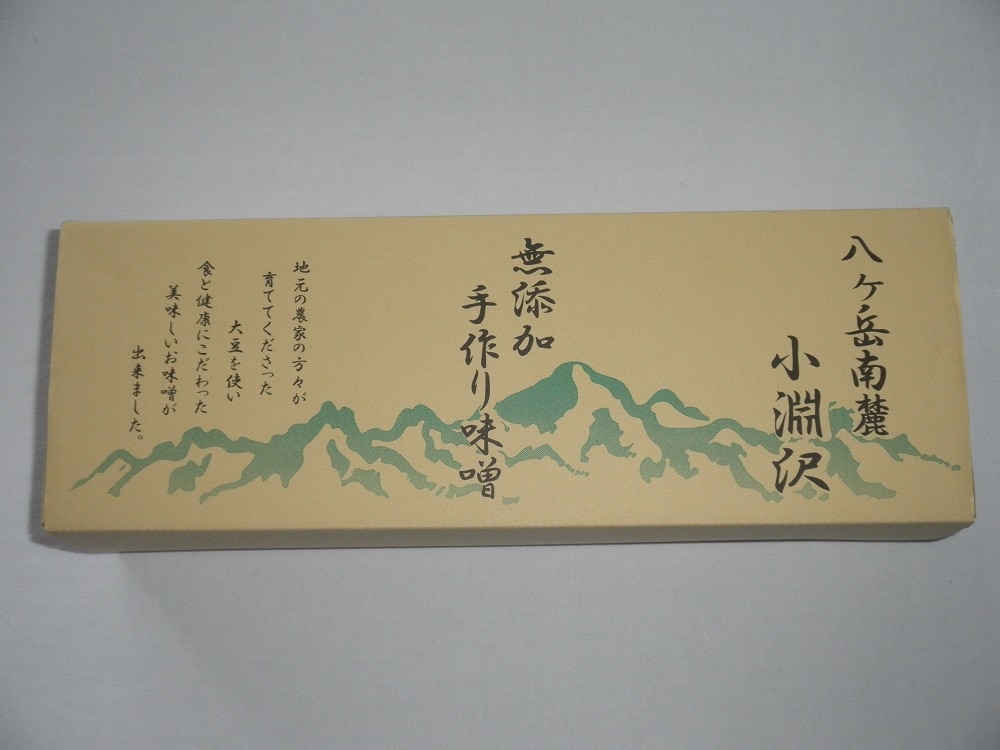 八ヶ岳南麓
小淵沢
無添加
手作り味噌
地元の農家の方々が
育ててくださった
大豆を使い
食と健康にこだわった
美味しいお味噌が
出来ました。